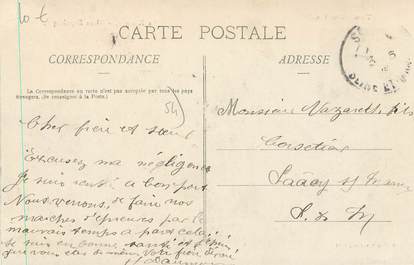 10 €
CARTE POSTALE
CORRESPONDANCE
ADRESSE
La Correspondance au recto n'est pas acceptée par tous les pays
étrangers. (Se renseigner à la Poste.)
Cher frère et sœur
Excusez ma négligence
Je suis rentré a bon port
Nous venons, de faire nos
marches d'épreuves par le
mauvais temps a part cela
je suis en bonne santé et
que vous êtes de même Votre frère
Monsieur Nazareth fils
Corsetier
s/ Marne
S. & M